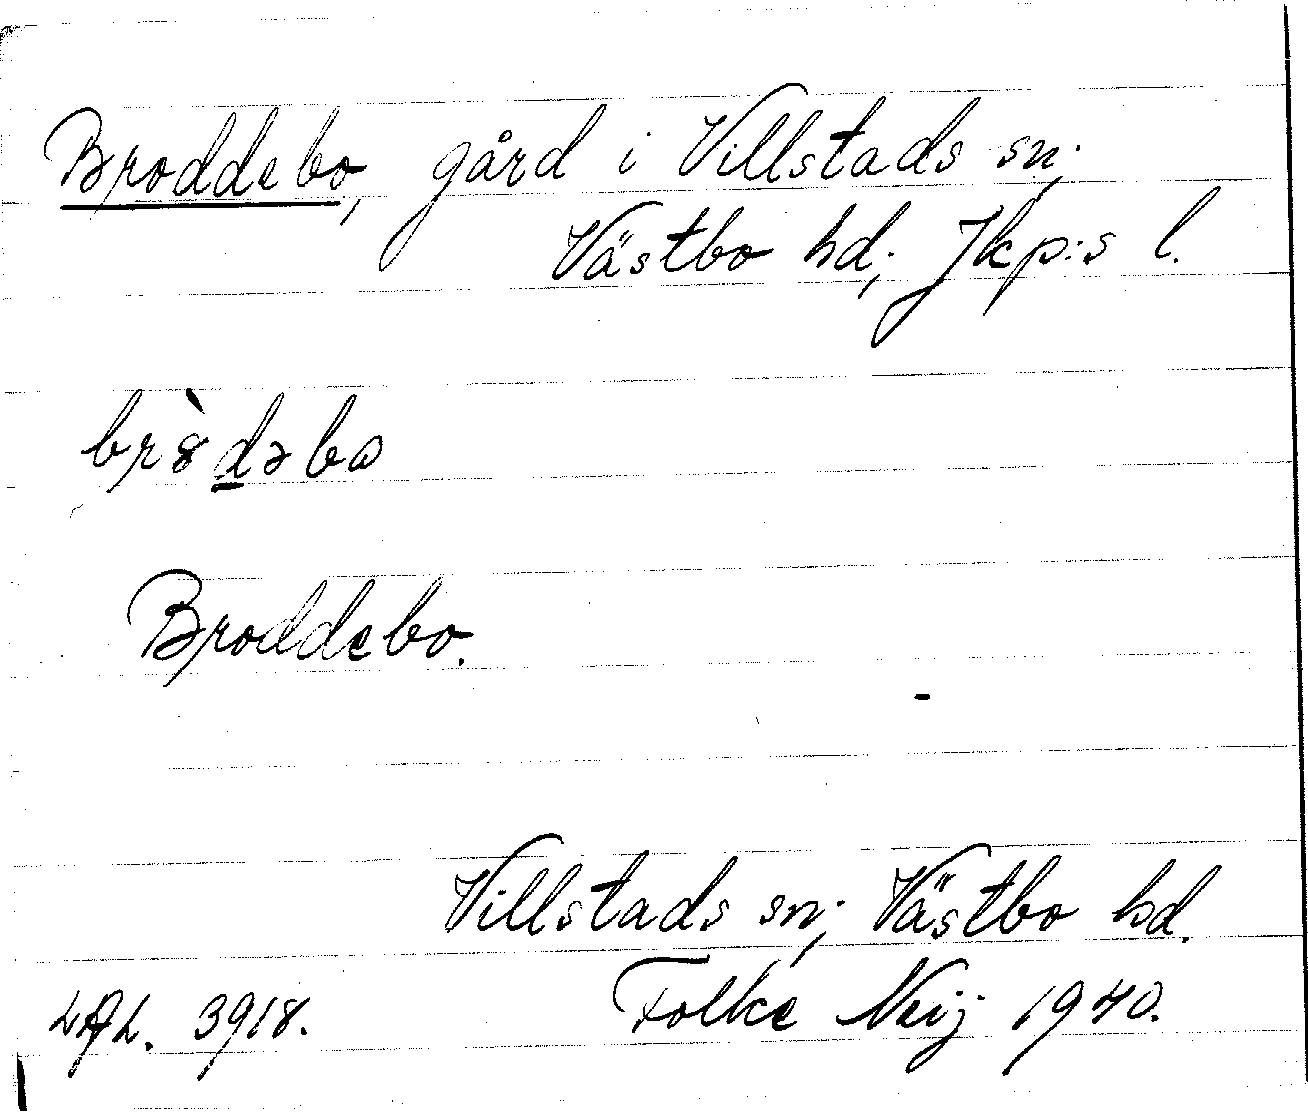 Broddebo, gård i Villstads sn;
Västbo hd; Jkp:s l.
br8̀dəbω
Broddebo.
Villstads sn; Västbo hd.
3918. Folke Neij 1940.